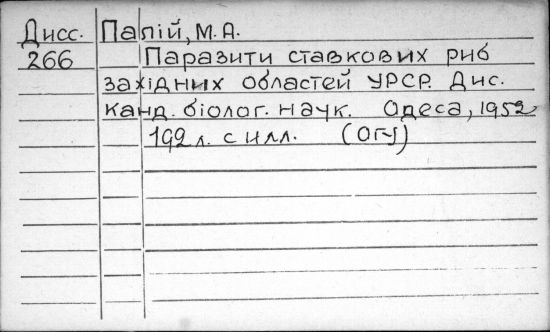 Дисс. Палій, М.А.
266 Паразити ставкових риб
західних областей УРСР. Дис.
канд. біолог. наук. Одеса, 1952
192 л. с илл. (ОГУ)